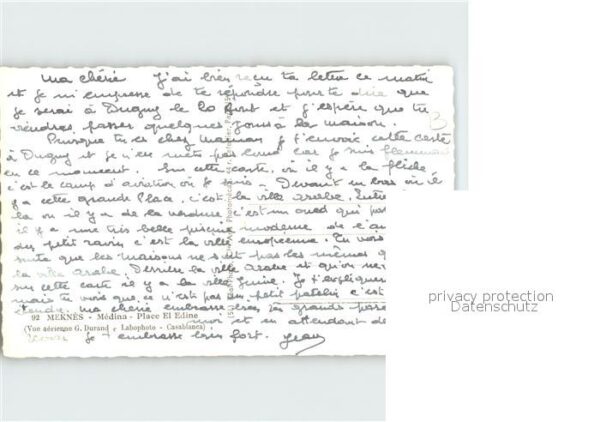 ma chérie J'ai bien reçu ta lettre ce matin
et je m'empresse de te répondre pour te dire que
je serai à Dugny le 20 Août et j'espère que tu
viendras passer quelques jours à la maison.
Puisque tu es chez maman je t'envoie cette carte
à Dugny et je n'en mets pas lourd car je suis
en ce moment. Sur cette carte, où il y a la flèche,
c'est le camp d'aviation où je suis. Devant en bas où il
y a cette grande Place, c'est la ville arabe. Entre
là où il y a de la verdure c'est un oued qui
il y a une très belle piscine moderne de l'
des petit ravin c'est la ville européenne. Tu vois
suite que les maisons ne sont pas les mêmes
la ville arabe. Derrière la ville arabe et qu'on
sur cette carte il y a la ville Juive. Je t'expliquer
mais tu vois que ce n'est pas un petit patelin c'est
ma chérie embrasse bien les grands
moi et en attendant de
92 MEKNÈS - Médina - Place El Edine
(Vue aérienne G. Durand - Labophoto - Casablanca)
Je t'embrasse bien fort. Jean
B
privacy protection
Datenschutz